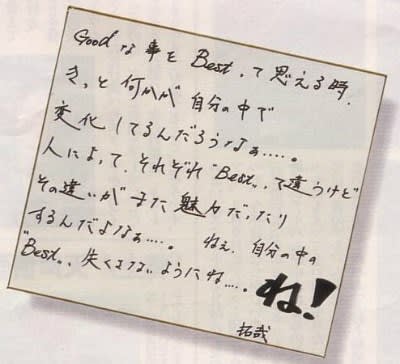 Goodな事をBest.って思える時.
きっと何かが自分の中で
変化してるんだろうなぁ.....。
人によって、それぞれ"Best〟って違うけど
その違いがまた魅力だったり
するんだよなぁ.....。 ねぇ、自分の中の
"Best〟、失くさないようにね.....。ね!
拓哉